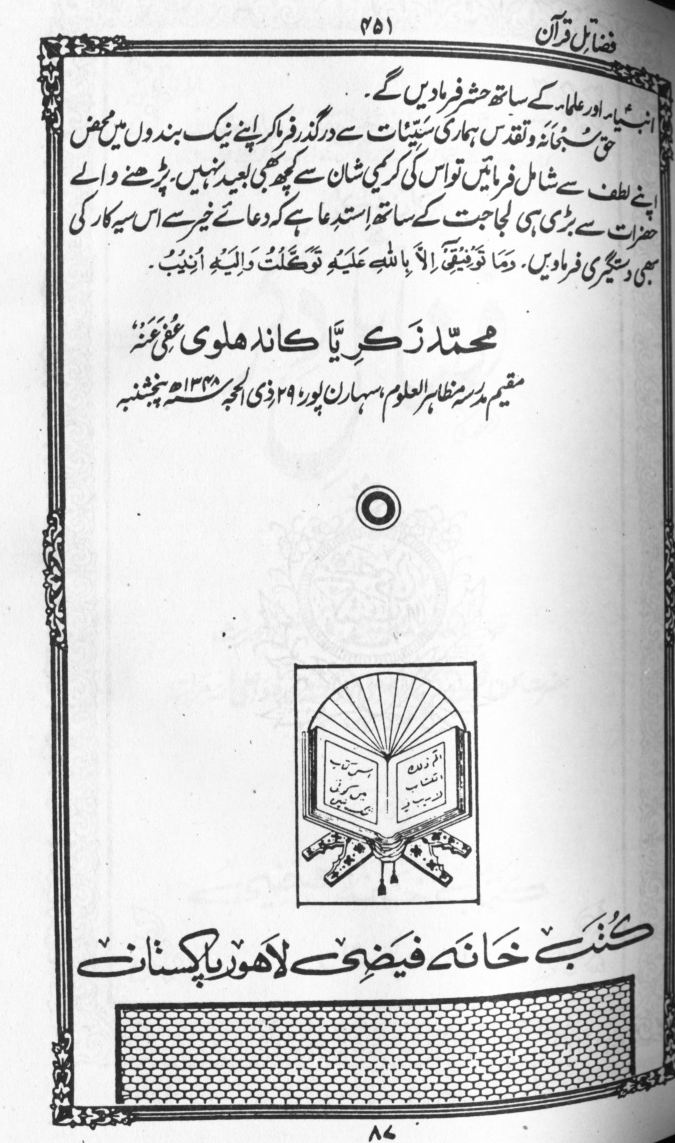 فضائل قرآن
۴۵۱
انبیاء اور علماء کے ساتھ حشر فرمادیں گے۔
حق سُبحانَہٗ وتقدس ہماری سیّئات سے درگذر فرماکر اپنے نیک بندوں میں محض
اپنے لطف سے شامل فرمائیں تو اس کی کریمی شان سے کچھ بھی بعید نہیں۔ پڑھنے والے
حضرات سے بڑی ہی لجاجت کے ساتھ اِستدعا ہے کہ دعائے خیر سے اس سیہ کار کی
بھی دستگیری فرماویں۔ وَمَا تَوْفِیْقِیْٓ اِلَّا بِاللّٰہِ عَلَیْہِ تَوَکَّلْتُ وَاِلَیْہِ اُنِیْبُ۔
محمّد زکریّا کاندھلوی عُفِیَ عَنْہُ
مقیم مدرسہ مظاہر العلوم، سہارن پور، ۲۹ ذی الحجہ ۱۳۴۸ھ پنجشنبہ
الم ذلک
الکتاب
لاریب فیہ
کُتب خَانَہ فیَضِی لاھور پاکستان
۸۷